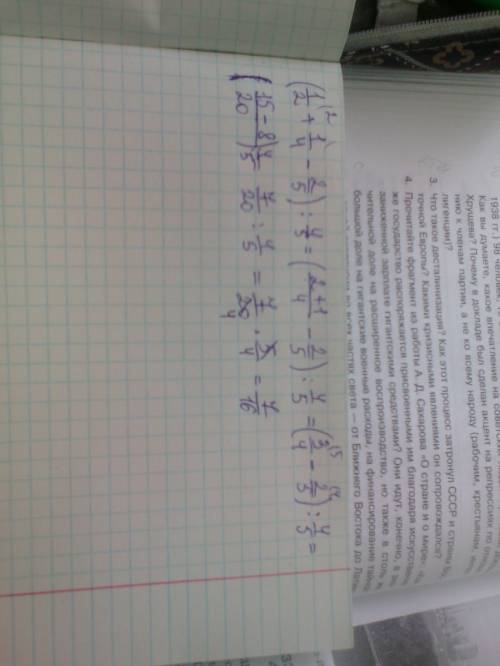 1938 гг.) 98 человек
Как вы думаете, какое впечатление на
Хрущева? Почему в докладе был сделан акцент на репрессиях по
нию к членам партии, а не ко всему народу (рабочим, крестьянам,
лигенции)?
3. Что такое десталинизация? Как этот процесс затронул СССР и страны
точной Европы? Какими кризисными явлениями он сопровождался?
4. Прочитайте фрагмент из работы А. Д. Сахарова «О стране и о мире»:
же государство распоряжается присвоенными им благодаря
заниженной зарплате гигантскими средствами? Они идут, конечно, в
чительной доле на расширенное воспроизводство, но также в столь
большой доле на гигантские военные расходы, на финансирование
во всех частях света — от Ближнего Востока до
(1/2 + 1/4 - 2/5) : 4/5 = (2+1/4 - 2/5) : 4/5 = (3/4 - 2/5) : 4/5 =
(15-8/20) 4/5 = 7/20 : 4/5 = 7/20 · 5/4 = 7/16